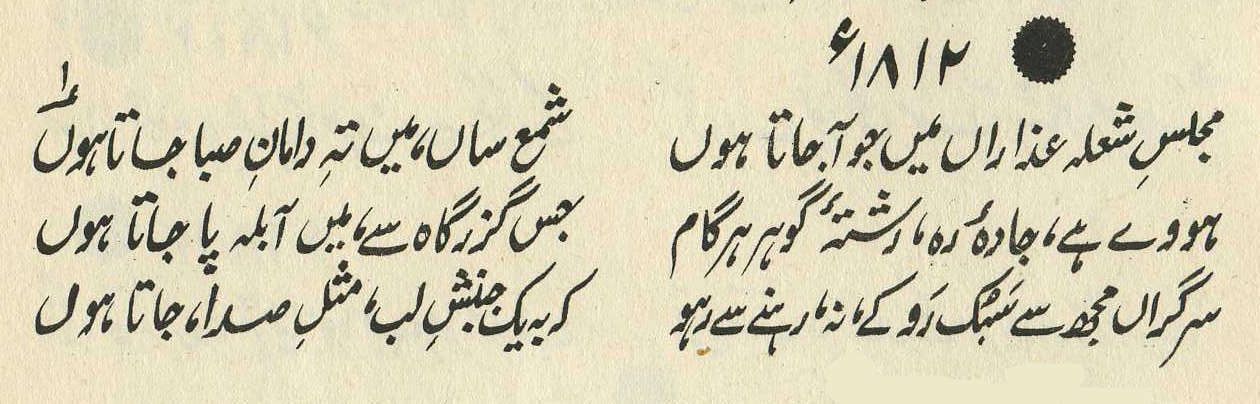 ۱۸۱۲ء
مجلسِ شعلہ عذاراں میں جو آ جاتا ہوں شمع ساں، میں تہِ دامانِ صبا جاتا ہوں
ہووے ہے، جادۂ رہ، رشتۂ گوہر ہر گام جس گزرگاہ سے، میں آبلہ پا جاتا ہوں
سرگراں مجھ سے سَبُک رَو کے، نہ، رہنے سے رہو کہ بہ یک جنبشِ لب، مثلِ صدا، جاتا ہوں